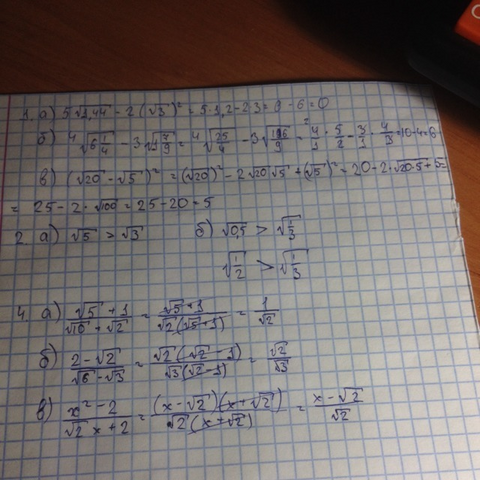 1. а) 5√1,44 - 2(√3)² = 5·1,2-2·3 = 6 - 6 = 0
б) 4√6 1/4 - 3√1 7/9 = 4√25/4 - 3√16/9 = 4/1 · 5/2 - 3/1 · 4/3 = 10-4=6
в) (√20 - √5)² = (√20)² - 2√20√5 + (√5)² = 20 - 2·√20·5 + 5 =
= 25 - 2·√100 = 25 - 20 = 5
2. а) √5 > √3 б) √0,5 > √1/3
√1/2 > √1/3
4. а) (√5 + 1)/(√10 + √2) = (√5 + 1)/(√2(√5+1)) = 1/√2
б) (2 - √2)/(√6 - √3) = (√2(√2 - 1))/(√3(√2 - 1)) = √2/√3
в) (x² - 2)/(√2 x + 2) = ((x - √2)(x + √2))/(√2(x + √2)) = (x - √2)/√2